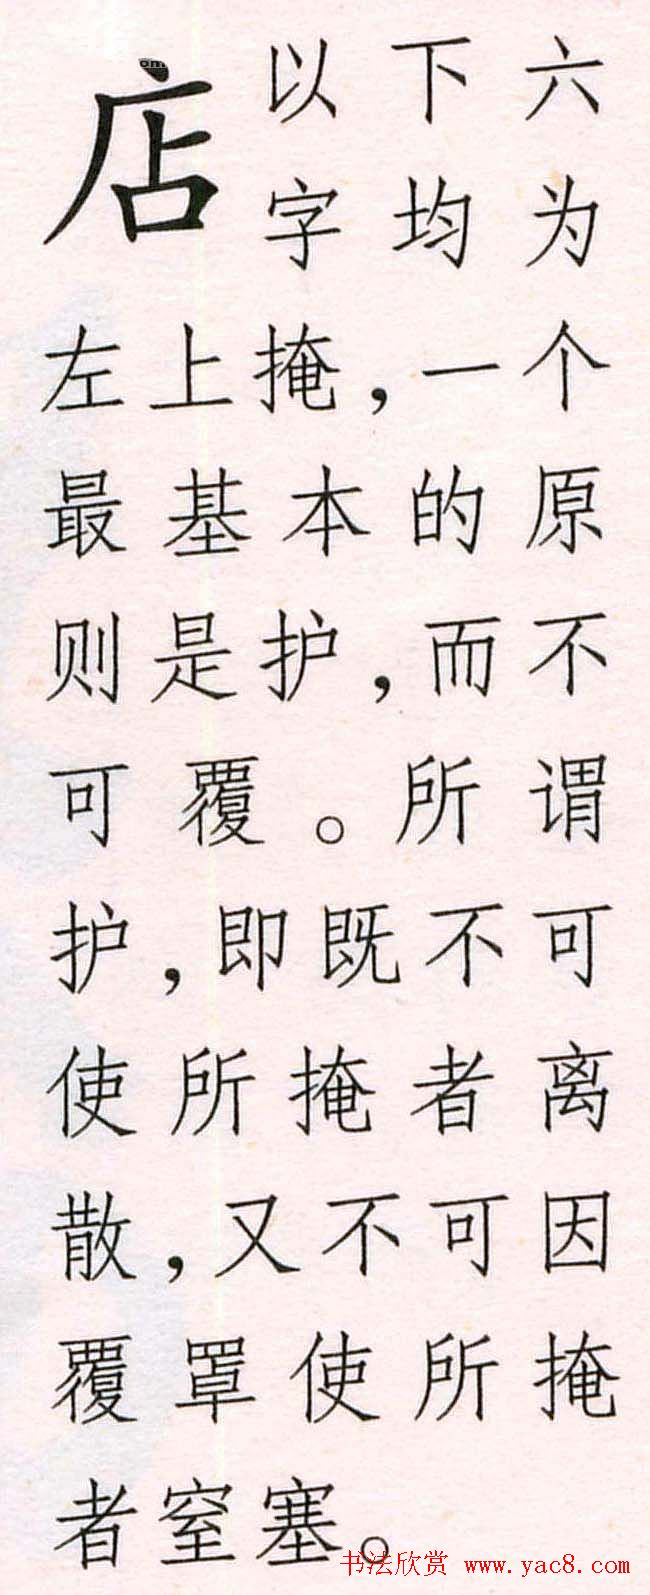 店
以下六
字均为
左上掩,一个
最基本的原
则是护,而不
可覆。所谓
护,即既不可
使所掩者离
散,又不可因
覆罩使所掩
者窒塞。
书法欣赏 www.yac8.com